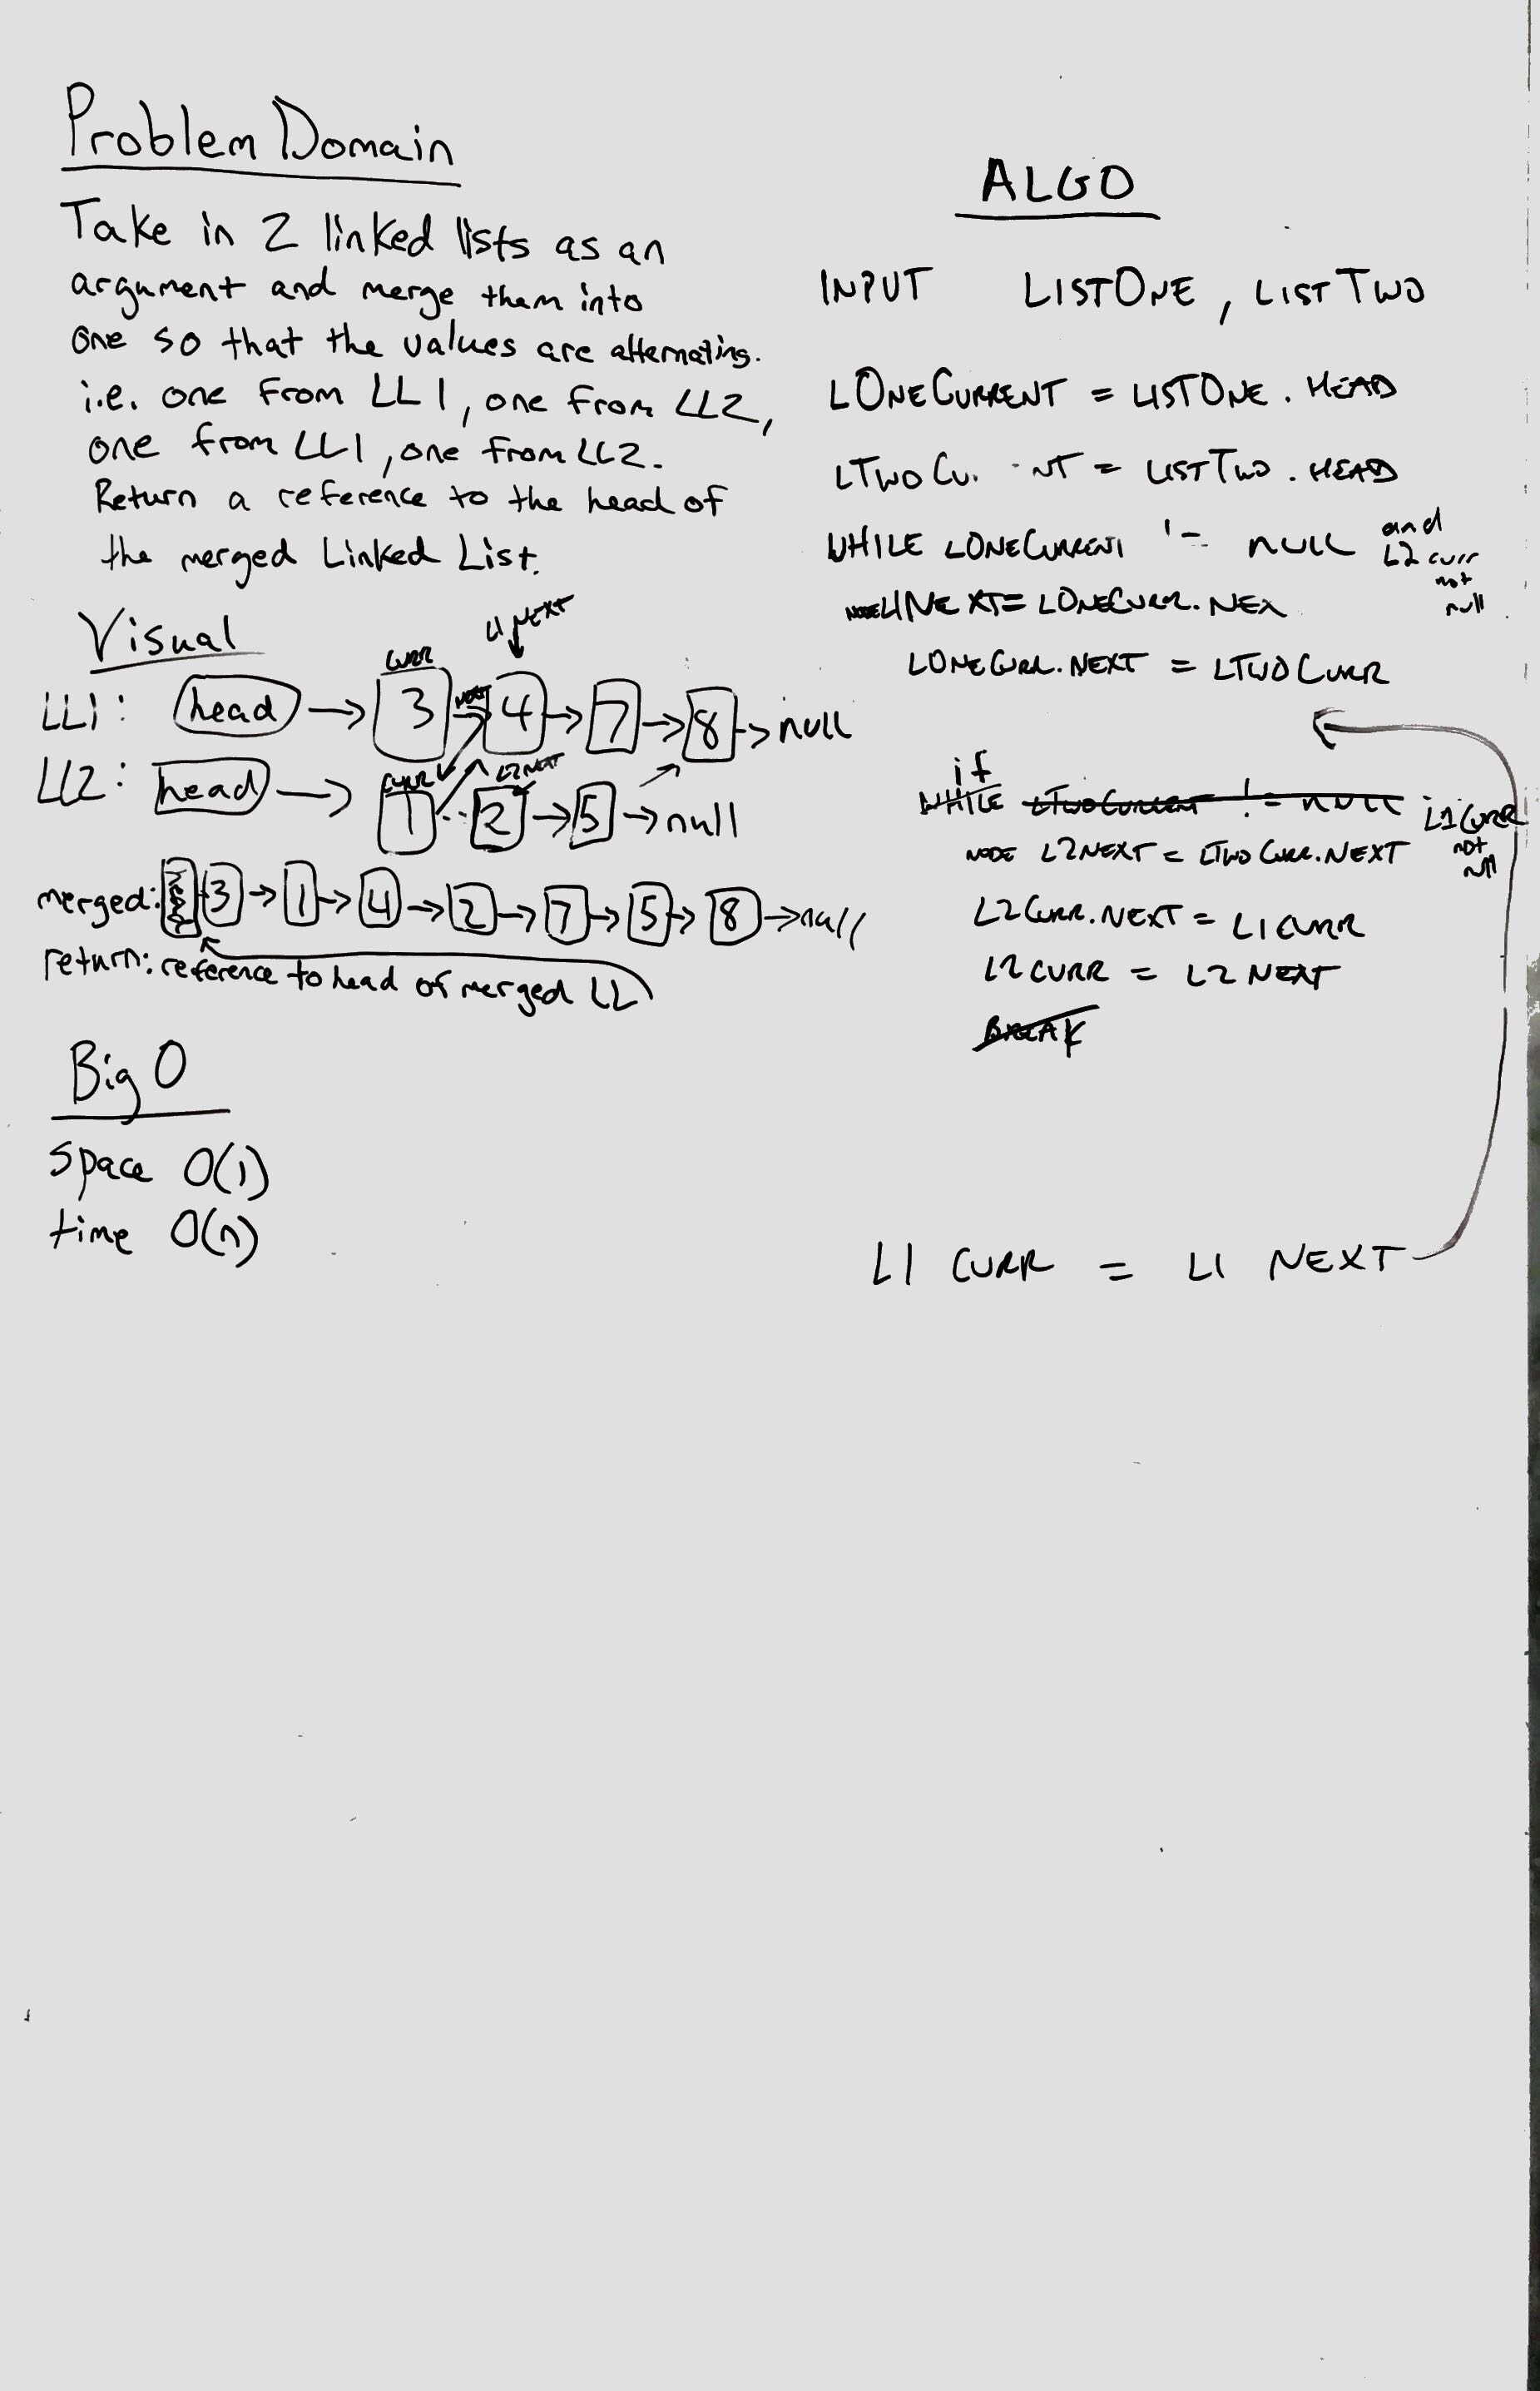 Problem Domain
Take in 2 linked lists as an
argument and merge them into
one so that the values are alternating.
i.e. one from LL1, one from LL2,
one from LL1, one from LL2.
Return a reference to the head of
the merged Linked List.
Visual
L1 NEXT
CURR
LL1: head → 3 → 4 → 7 → 8 → null
CURR L2 NEXT
LL2: head → 1 2 → 5 → null
merged: 3 → 1 → 4 → 2 → 7 → 5 → 8 → null
return: reference to head of merged LL
Big O
space O(1)
time O(n)
ALGO
INPUT LISTONE, LISTTWO
LONECURRENT = LISTONE.HEAD
LTWOCU. NT = LISTTWO.HEAD
WHILE LONECURRENT != NULL and
L2 curr
not
null
L1NEXT = LONECURR.NEX
LONECURR.NEXT = LTWOCURR
if
WHILE LTWOCURRENT != NULL L1CURR
not
null
NODE L2NEXT = LTWOCURR.NEXT
L2CURR.NEXT = L1CURR
L2CURR = L2NEXT
BREAK
L1 CURR = L1 NEXT